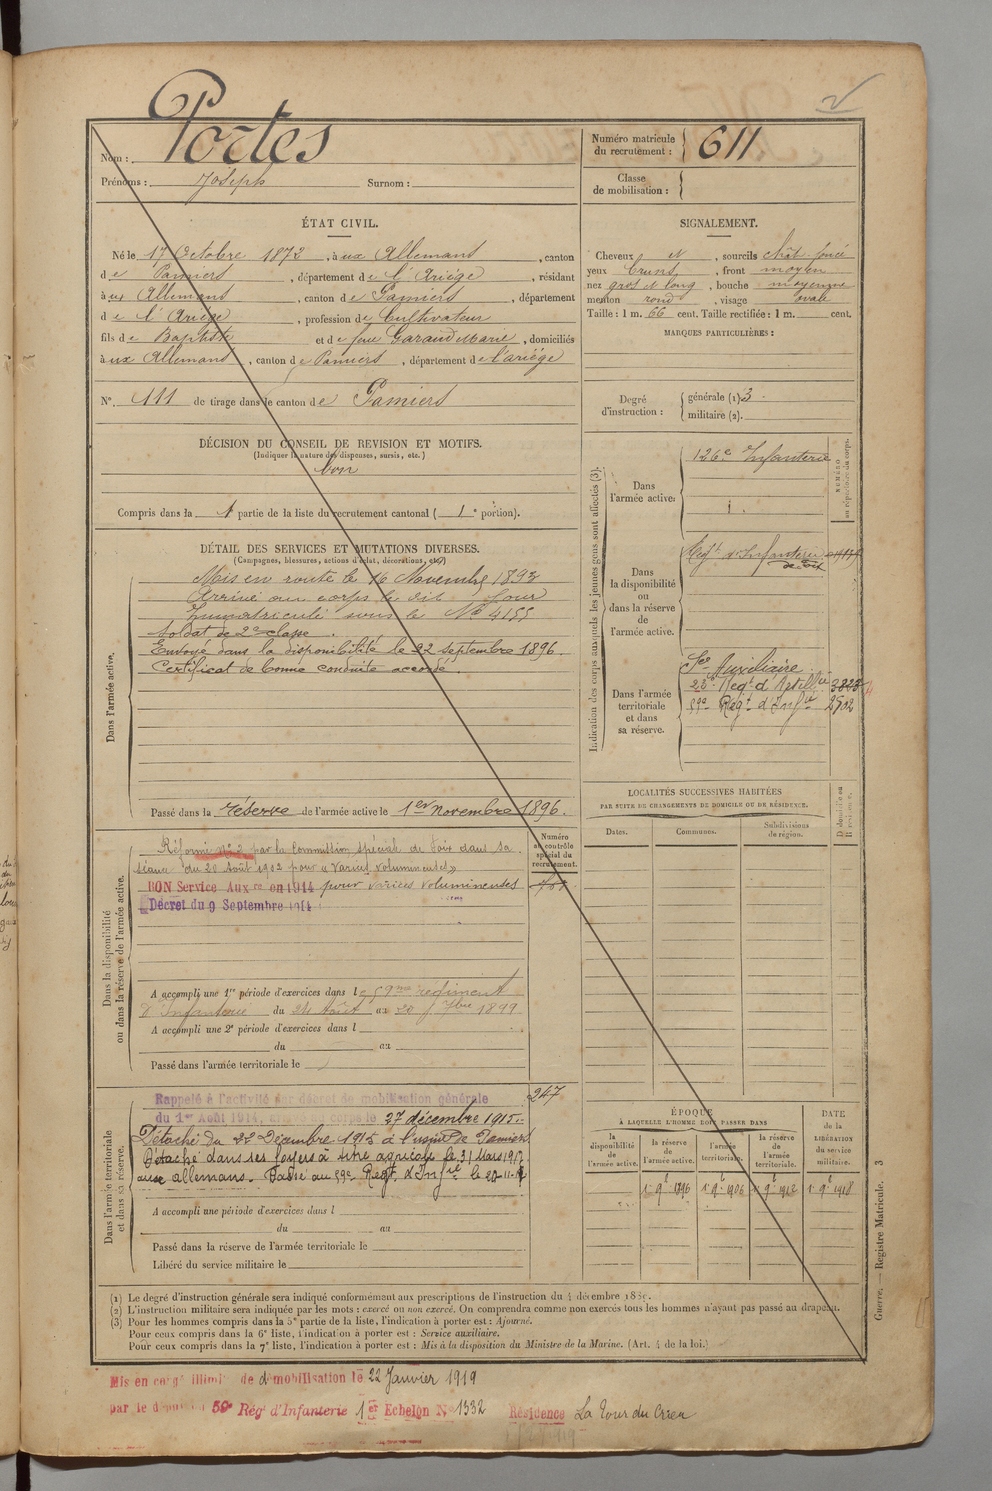 Portes
Nom :
Prénoms : Joseph Surnom :
Numéro matricule du recrutement : 611
Classe de mobilisation :
ÉTAT CIVIL.
Né le 17 Octobre 1872, à ux Allemans, canton
de Pamiers, département de l'Ariége, résidant
à ux Allemans, canton de Pamiers, département
de l'Ariége, profession de Cultivateur
fils de Baptiste et de feue Garaud Marie, domiciliés
à ux Allemans, canton de Pamiers, département de l'ariége
N° 111 de tirage dans le canton de Pamiers
SIGNALEMENT.
Cheveux et, sourcils chât. foncé
yeux bruns, front moyen
nez gros et long, bouche moyenne
menton rond, visage ovale
Taille : 1 m. 66 cent. Taille rectifiée : 1 m. cent.
MARQUES PARTICULIÈRES :
Degré d'instruction : générale (1) 3.
militaire (2).
DÉCISION DU CONSEIL DE REVISION ET MOTIFS.
(Indiquer la nature des dispenses, sursis, etc.)
bon
Compris dans la 1 partie de la liste du recrutement cantonal ( 1e portion).
DÉTAIL DES SERVICES ET MUTATIONS DIVERSES.
(Campagnes, blessures, actions d'éclat, décorations, etc.)
Dans l'armée active.
Mis en route le 16 Novembre 1893
Arrivé au corps le dit jour
Immatriculé sous le No 4155
Soldat de 2e classe.
Envoyé dans la disponibilité le 22 septembre 1896.
Certificat de bonne conduite accordé.
Passé dans la réserve de l'armée active le 1er novembre 1896.
Indication des corps auxquels les jeunes gens sont affectés (3).
NUMÉRO au répertoire du corps.
Dans l'armée active.
126e Infanterie
Dans la disponibilité ou dans la réserve de l'armée active.
Regt d'Infanterie
Dans l'armée territoriale et dans sa réserve.
Sce Auxiliaire
23e Regt d'Artillie 3823
59e Regt d'Infie 2502
LOCALITÉS SUCCESSIVES HABITÉES
PAR SUITE DE CHANGEMENTS DE DOMICILE OU DE RÉSIDENCE.
Dates. Communes. Subdivisions de région. D domicile ou R résidence.
Dans la disponibilité ou dans la réserve de l'armée active.
Numéro au contrôle spécial du recrutement.
Réformé No 2 par la Commission spéciale de Foix dans sa
séance du 20 Août 1902 pour « Varices volumineuses »
BON Service Auxre en 1914 pour varices volumineuses
Décret du 9 Septembre 1914
A accompli une 1re période d'exercices dans le 59me régiment
d'Infanterie du 24 Août au 20 7bre 1899
A accompli une 2e période d'exercices dans l
du au
Passé dans l'armée territoriale le
Dans l'armée territoriale et dans sa réserve.
247
Rappelé à l'activité par décret de mobilisation générale
du 1er Août 1914, arrivé au corps le 27 décembre 1915.
Détaché du 22 Décembre 1915 à l'usine de Pamiers
Détaché dans ses foyers à titre agricole le 31 Mars 1917
aux allemans. Passé au 59e Regt d'Infie le
A accompli une période d'exercices dans l
du au
Passé dans la réserve de l'armée territoriale le
Libéré du service militaire le
ÉPOQUE
À LAQUELLE L'HOMME DOIT PASSER DANS
DATE DE LA LIBÉRATION du service militaire.
la disponibilité de l'armée active. la réserve de l'armée active. l'armée territoriale. la réserve de l'armée territoriale.
1er 9e 1896 1er 9e 1906 1er 9e 1912 1er 9e 1918
(1) Le degré d'instruction générale sera indiqué conformément aux prescriptions de l'instruction du 4 décembre
(2) L'instruction militaire sera indiquée par les mots : exercé ou non exercé. On comprendra comme non exercés tous les hommes n'ayant pas passé au drapeau.
(3) Pour les hommes compris dans la 5e partie de la liste, l'indication à porter est : Ajourné.
Pour ceux compris dans la 6e liste, l'indication à porter est : Service auxiliaire.
Pour ceux compris dans la 7e liste, l'indication à porter est : Mis à la disposition du Ministre de la Marine. (Art. 4 de la loi.)
Guerre. — Registre Matricule. 3
Mis en congé illimité de démobilisation le 22 Janvier 1919
par le dépôt du 59e Rég d'Infanterie 1er Echelon No 1332 Résidence La Tour du Crieu